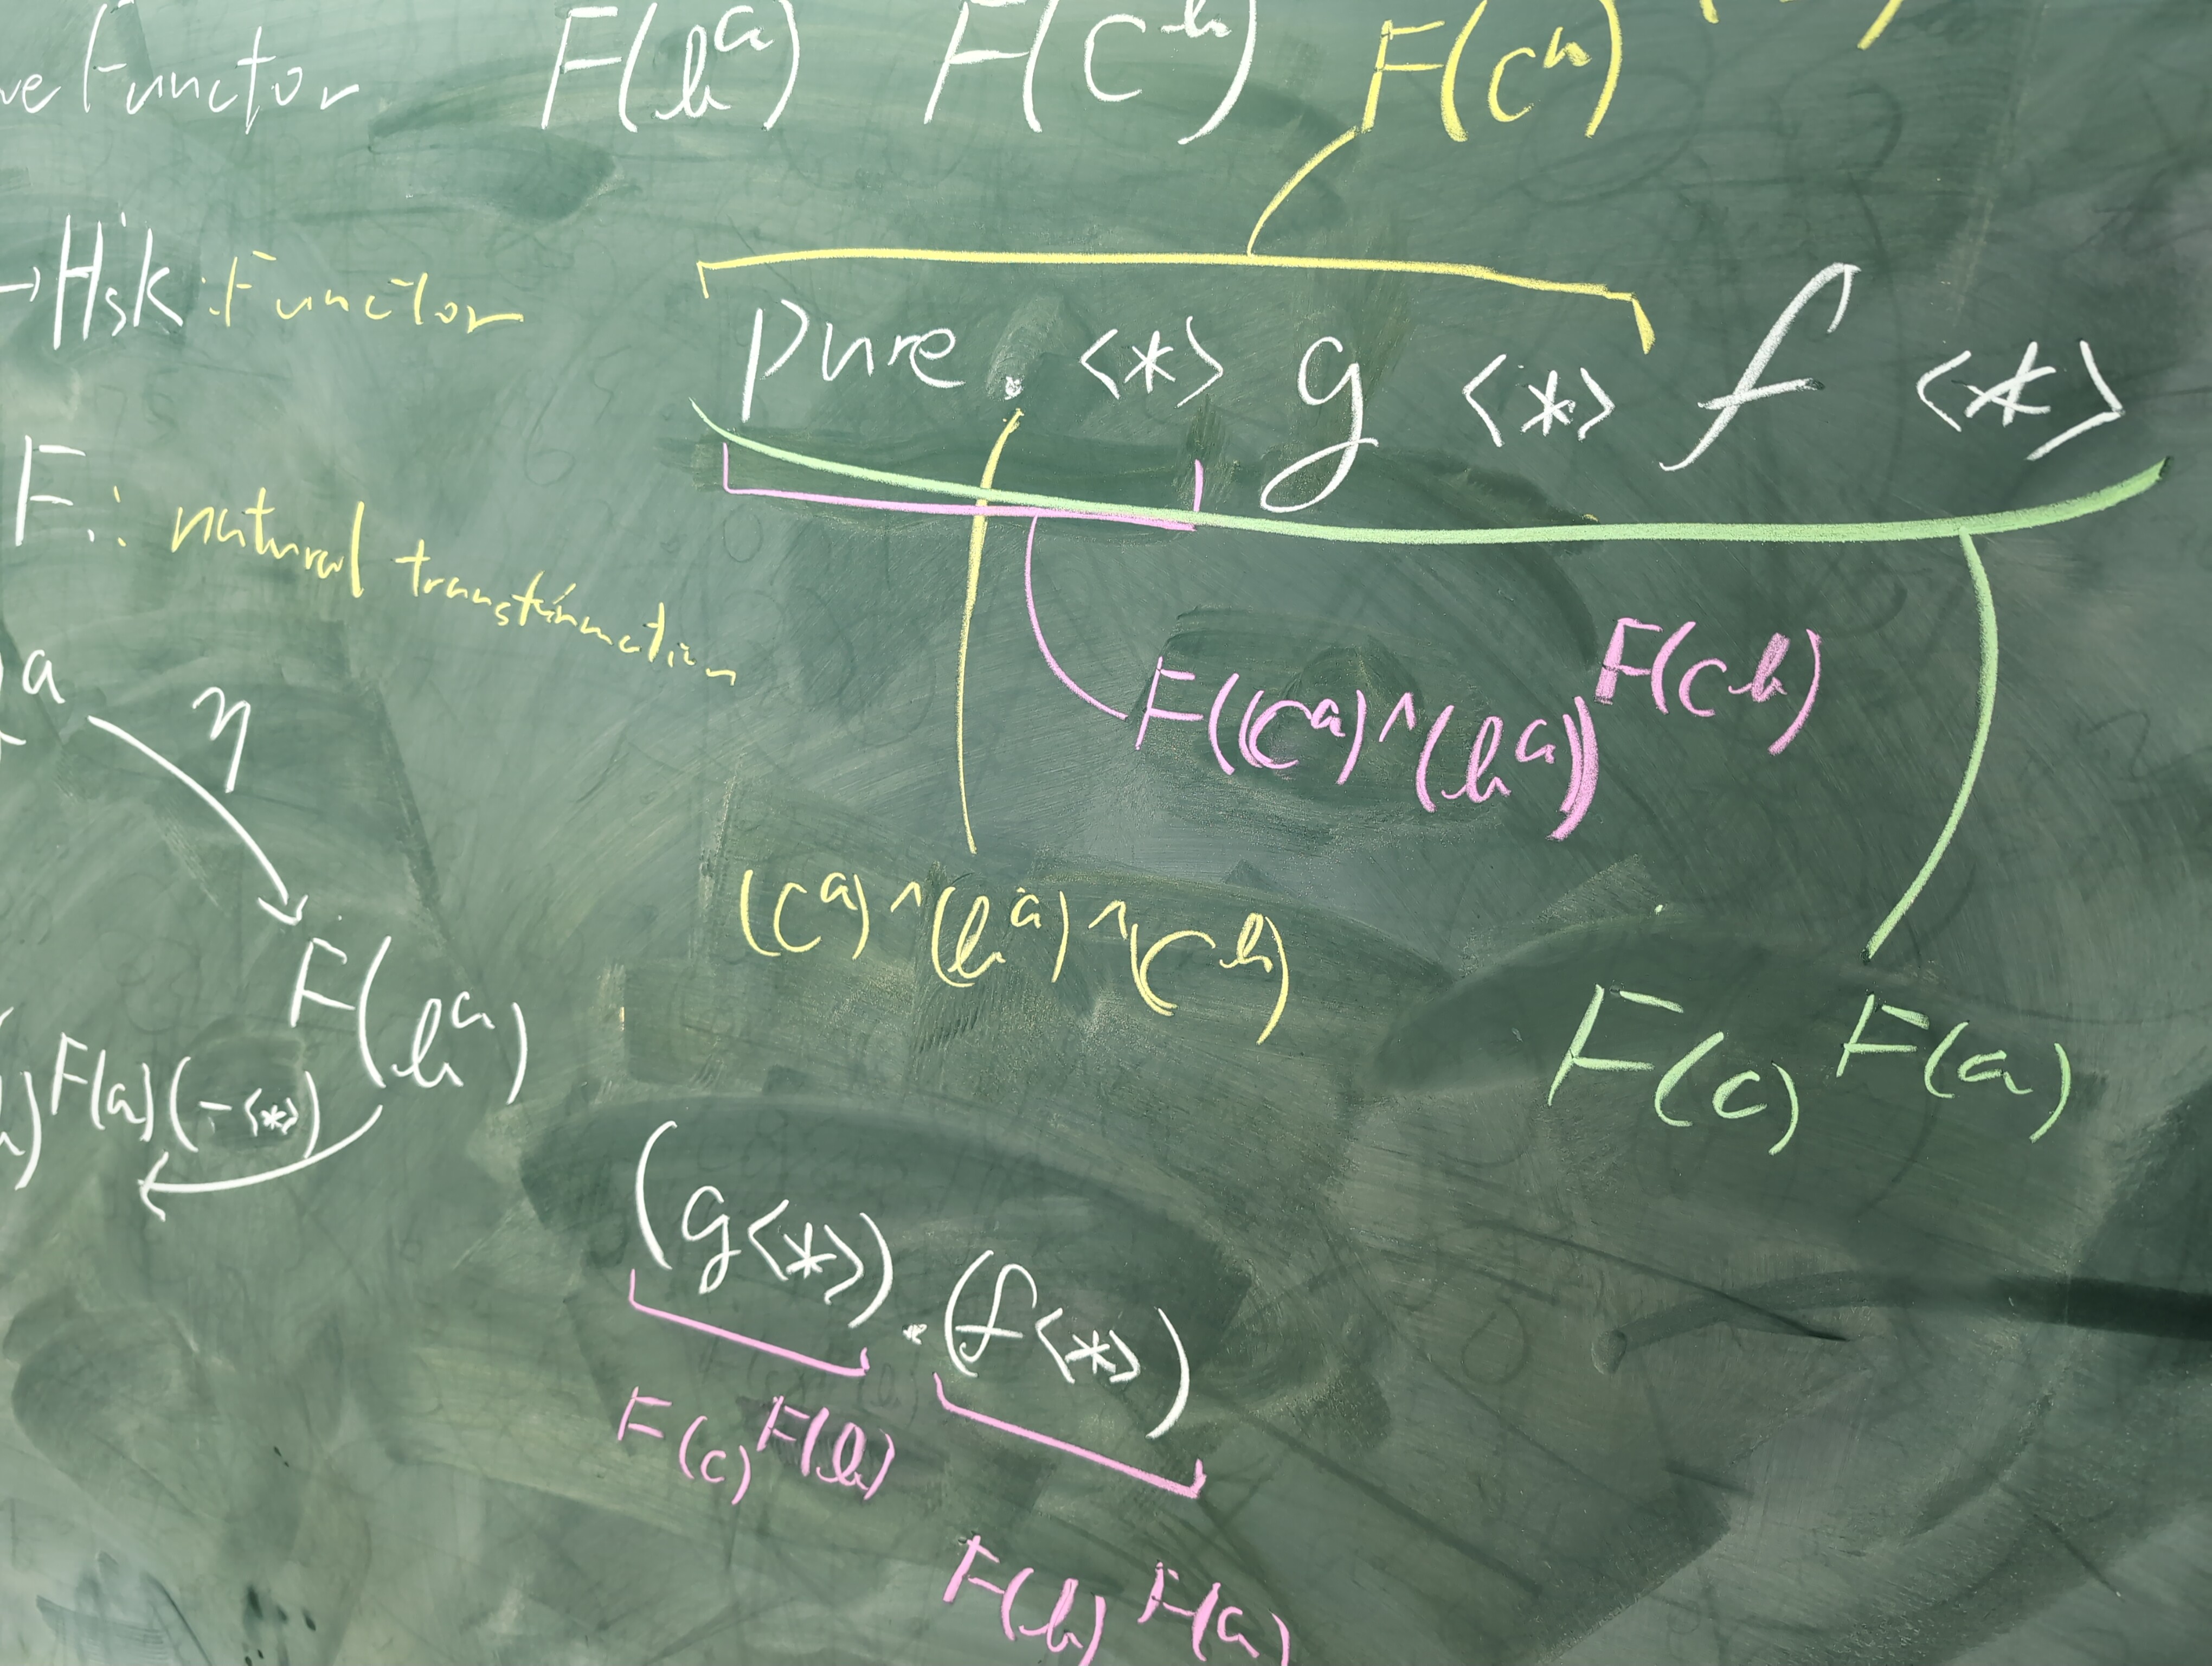 Functor F(b^a) F(c^b) F(c^a)
→Hsk :Functor
pure . <*> g <*> f <*>
F : natural transformation
a η
F((c^a)^(b^a))^F(c^b)
(c^a)^(b^a)^(c^b)
F(b^a)
F(a) (-<*>)
F(c)^F(a)
(g<*>) . (f<*>)
F(c)^F(b)
F(b)^F(a)